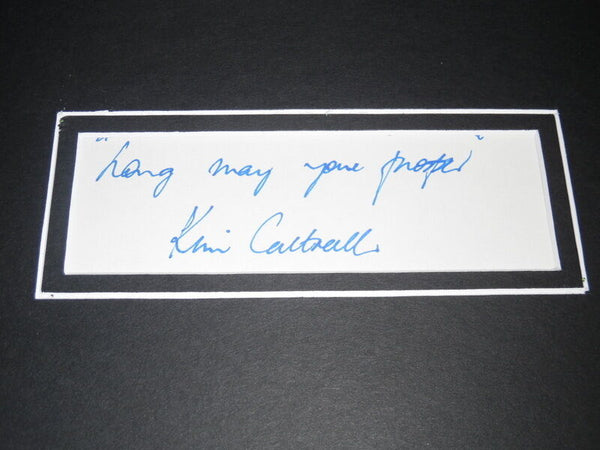 "Long may you prosper"
Kim Cattrall